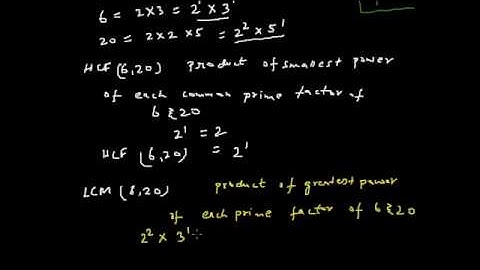 6 = 2×3 = 2¹ × 3¹
20 = 2×2×5 = 2² × 5¹
HCF (6,20) product of smallest power
of each common prime factor of
6 & 20
2¹ = 2
HCF (6,20) = 2¹
LCM (8,20) product of greatest power
of each prime factor of 6 & 20
2² × 3¹